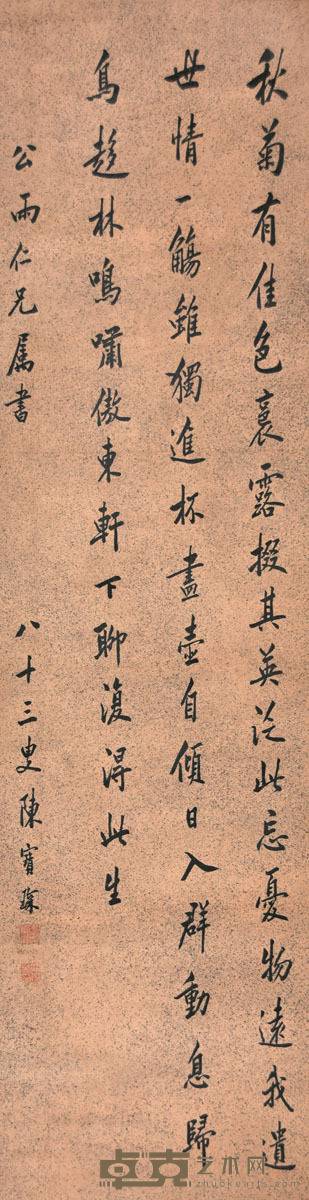 秋菊有佳色裛露掇其英泛此忘憂物遠我遺
世情一觴雖獨進杯盡壺自傾日入群動息歸
鳥趍林鳴嘯傲東軒下聊復得此生
公雨仁兄屬書
八十三叟陳寶琛
卓克艺术网
www.zhuokearts.com